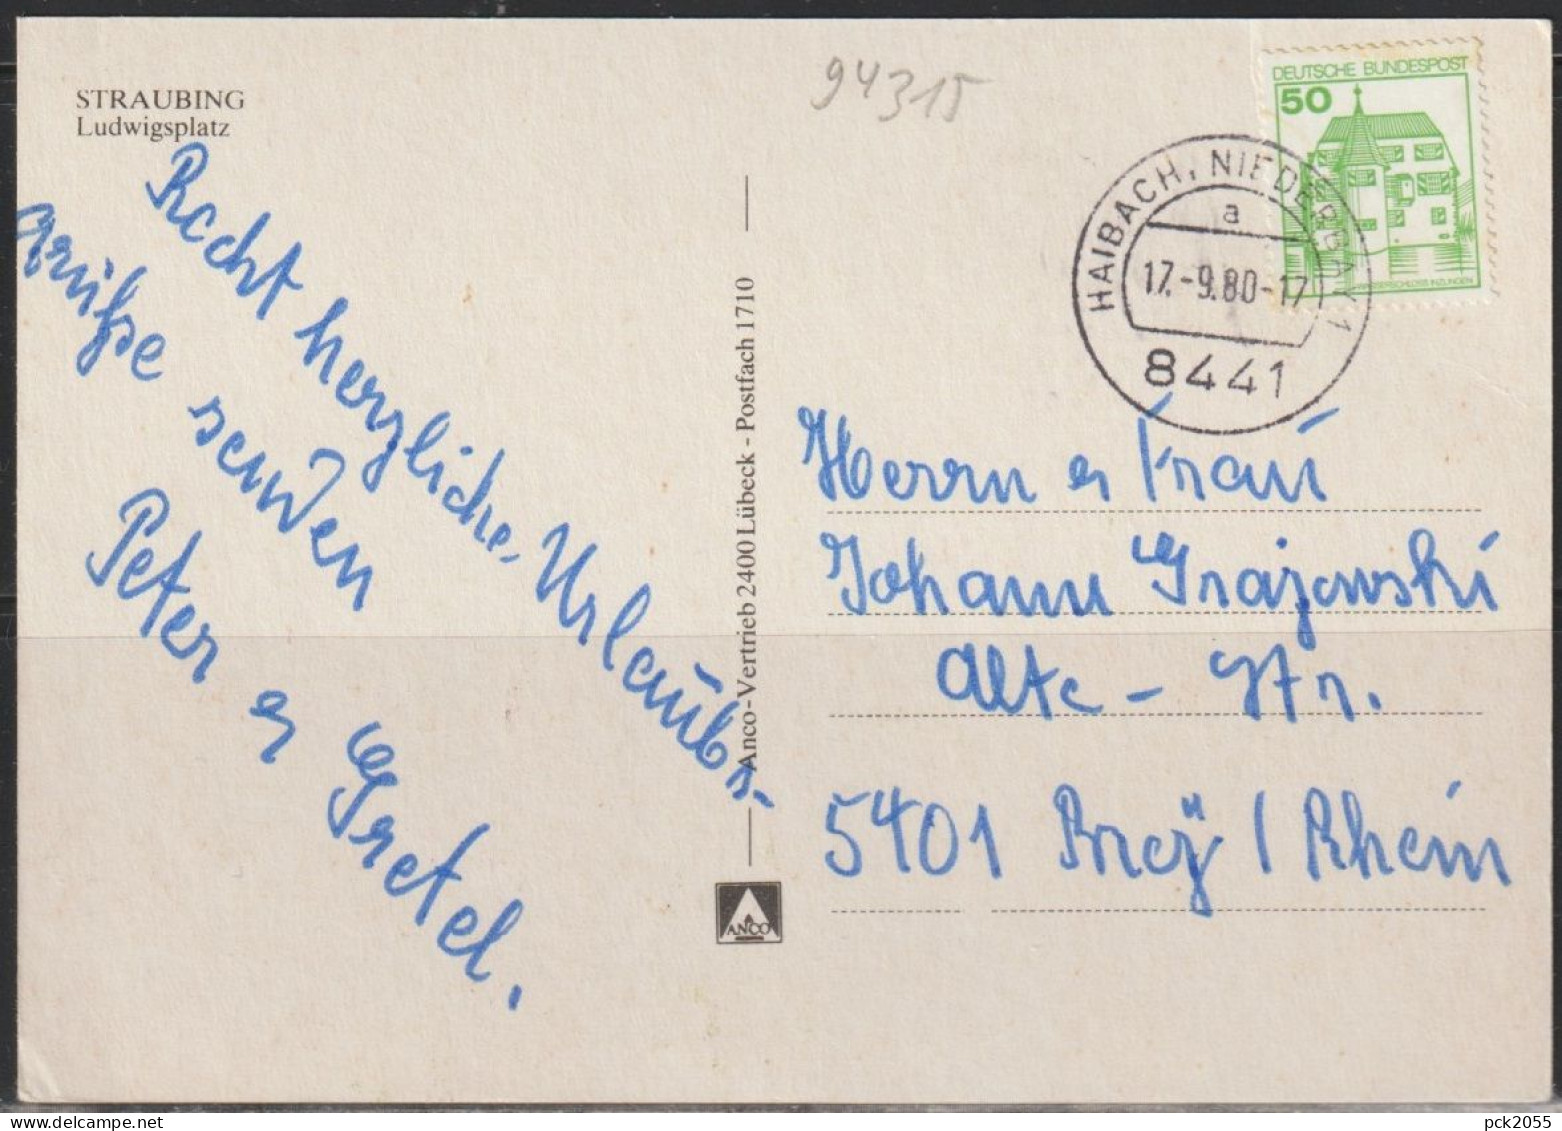 STRAUBING
Ludwigsplatz
94315
Recht herzliche Urlaubs-
grüße senden
Peter u Gretel.
Anco-Vertrieb 2400 Lübeck - Postfach 1710
ANCO
DEUTSCHE BUNDESPOST
50
WASSERSCHLOSS INZLINGEN
HAIBACH, NIEDERBAY 1
a
17.-9.80-17
8441
Herrn u Frau
Johann Grajewski
Alte-Str.
5401 Brey / Rhein
pck2055